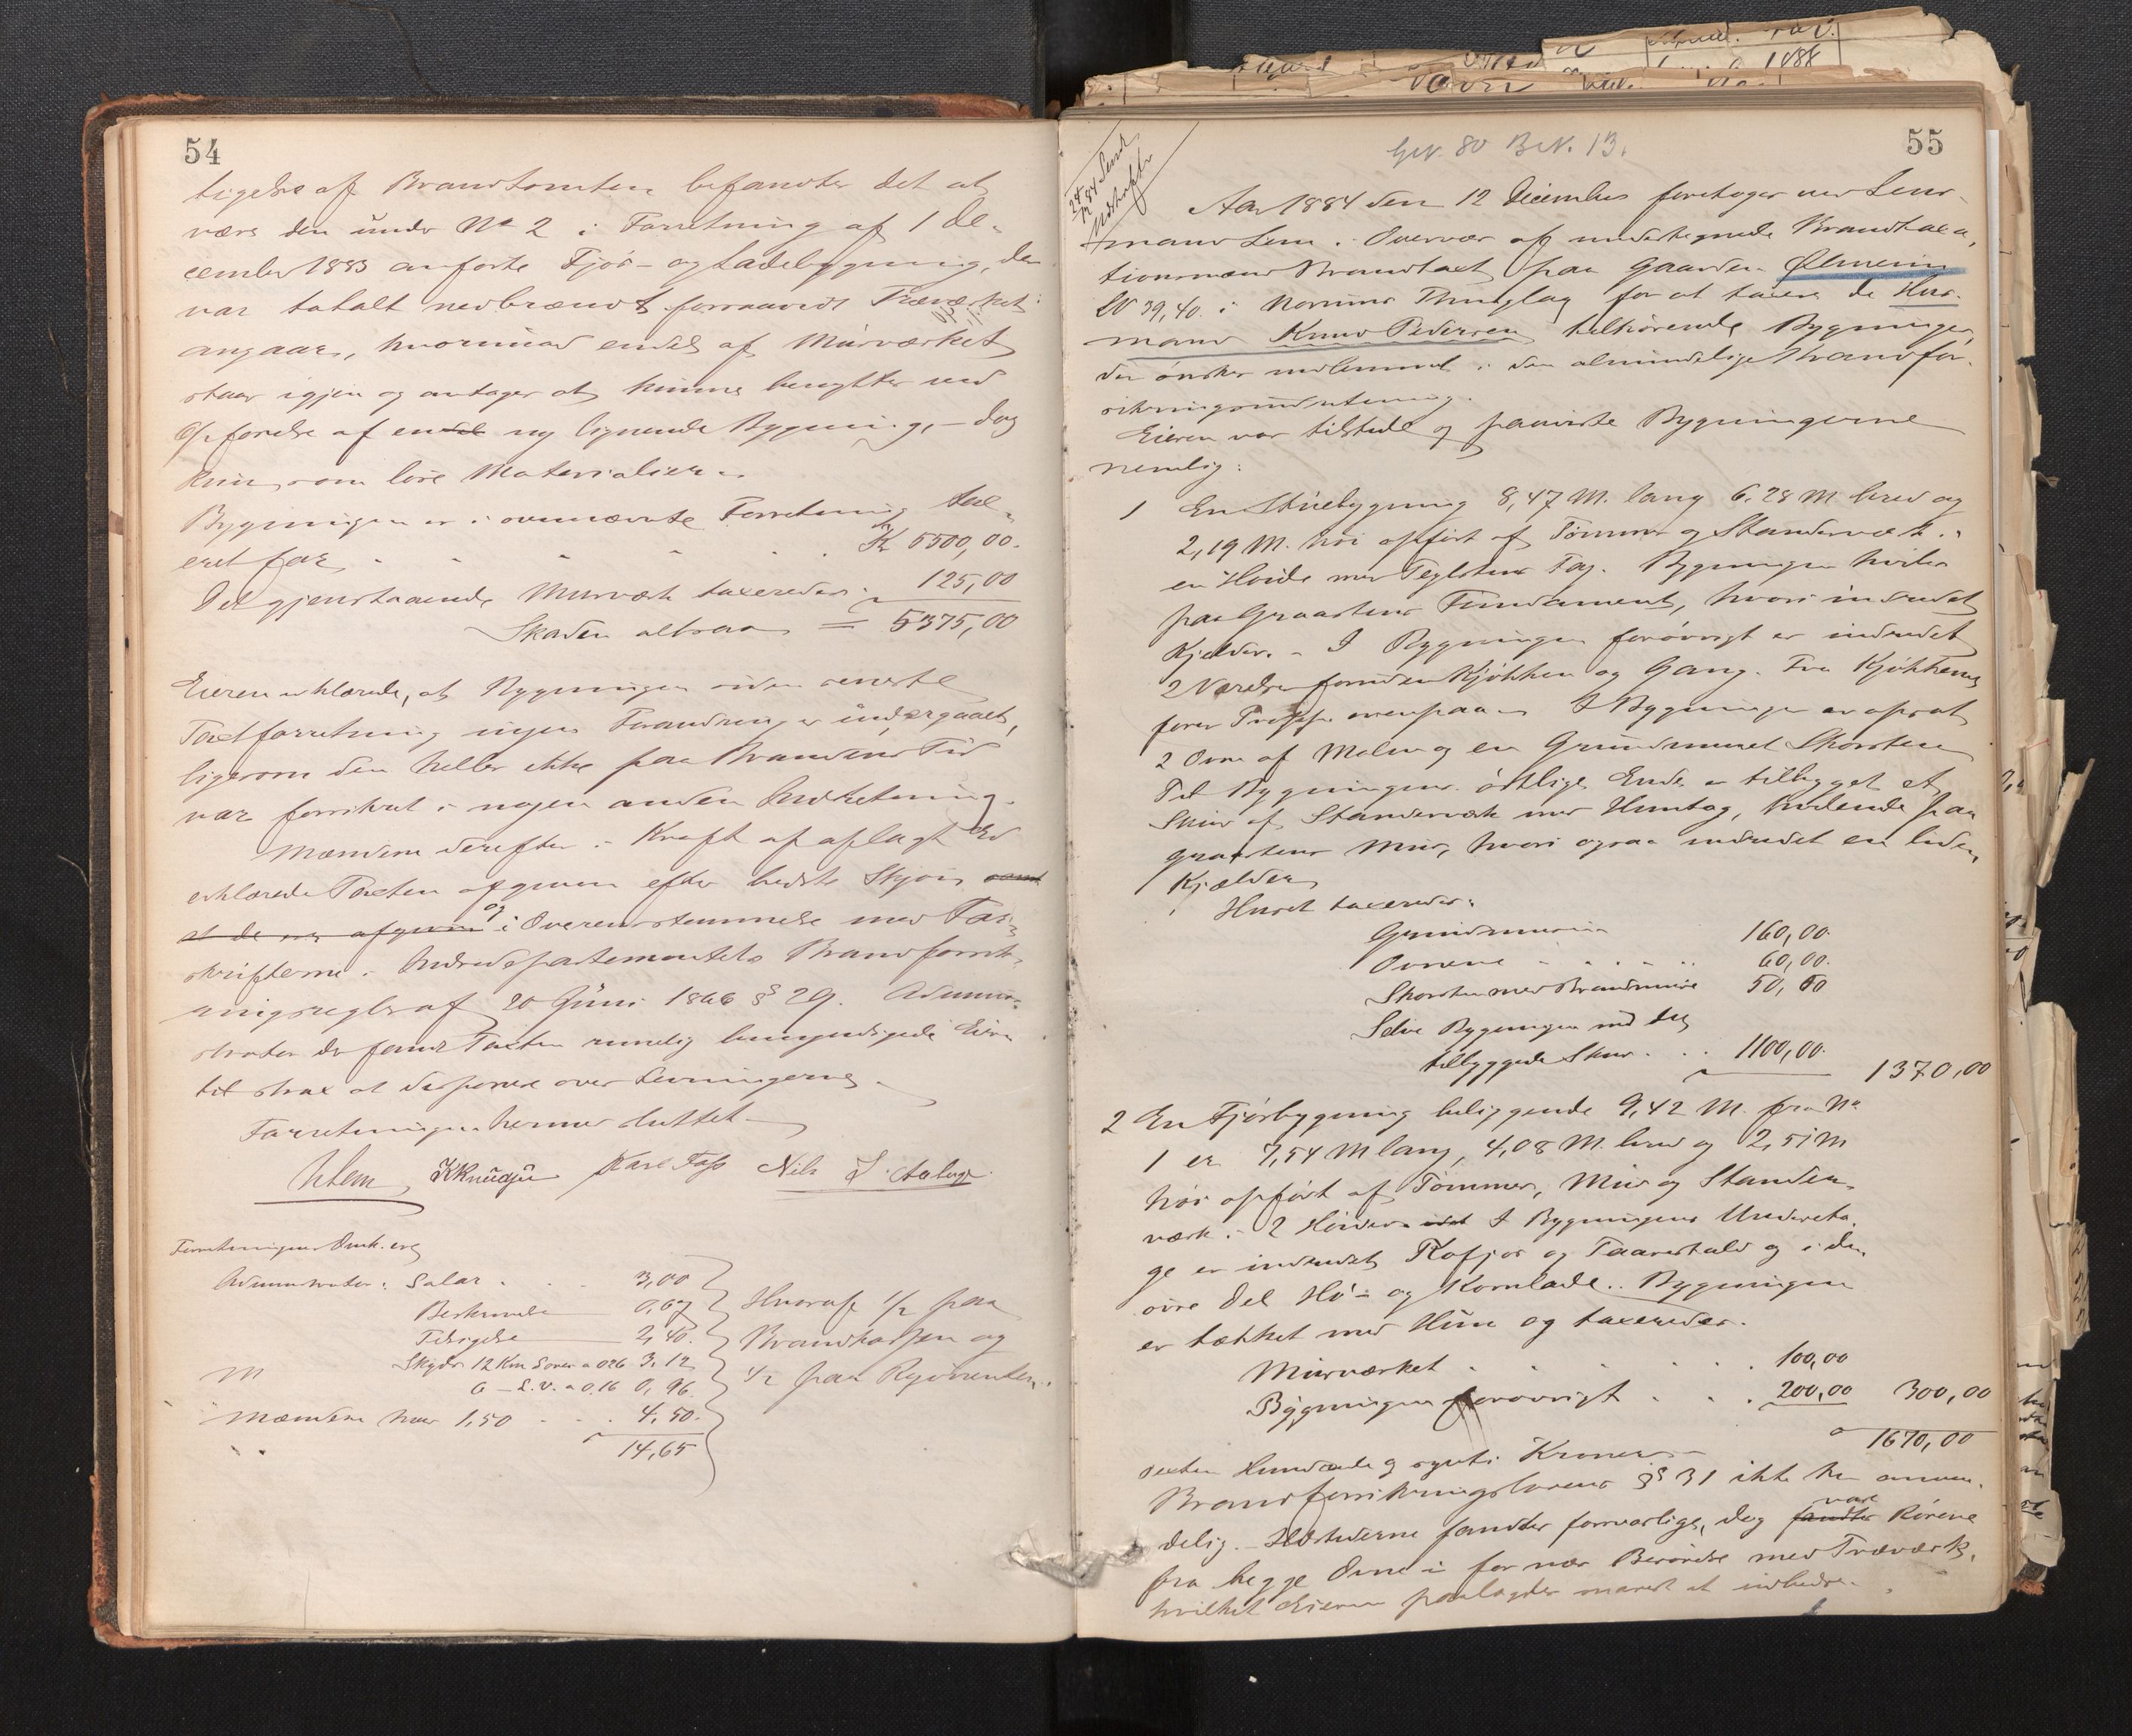 54
tigelse af Brandtomten befandtes det at
være den under No 2 i Forretning af 1 De-
cember 1883 anførte Fjøs- og Ladebygning, der
var totalt nedbrændt forsaavidt Træværket
angaar, hvorimod endel af Murværket
staar igjen og antages at kunne benyttes ved
Opførelse af en ny lignende Bygning, - dog
kun som løse Materialier.
Bygningen er i ovennævnte Forretning tax-
eret for Kr 5500,00.
Det gjenstaaende Murværk taxeredes 125,00
Skaden altsaa = 5375,00
Eieren erklærede, at Bygningen siden seneste
Taxtforretning ingen Forandringer undergaaet,
ligesom den heller ikke paa Brandens Tid
var forsikret i nogen anden Indretning.
Mændene derefter i Kraft af aflagt Ed
erklærede Taxten afgiven efter bedste Skjøn samt
at de er afgiven og i Overensstemmelse med For-
skrifterne i Indredepartementets Brandforsik-
ringsregler af 20 Juni 1866 § 29. Admini-
strator der fandt Taxten rimelig bemyndigede Eieren
til strax at disponere over Levningerne.
Forretningen hermed sluttet
Lem KKnudsen Karl Foss Nils
Forretningens Omk. ere
Administrator: Salær 3,00
Beskrivelse 0,67
Tilsigelse 2,40.
Skyds 12 Km a 026 3,12
6 - L.V. a 0,16 0,96.
Mændene hver 1,50 4,50.
14,65
Hvoraf 1/2 paa
Brandkassen og
1/2 paa Rekvirenten.
55
GN. 80 BN. 13.
24/12 84 Sendt
Udskrift
Aar 1884 den 12 December foretoges ved Lens-
mand Lem i Overvær af undertegnede Brandtaxa-
tionsmænd Brandtaxt paa Gaarden Ølmerin
LN 39, 40. i Thinglag for at taxere de Hus-
mand Knud Pedersen tilhørende Bygninger
der ønskes indlemmet i den almindelige Brandfor-
sikringsindretning.
Eieren var tilstede og paaviste Bygningerne
nemlig:
1 En Stuebygning 8,47 M. lang 6,28 M. bred og
2,19 M. høi opført af Tømmer og Standerværk i
en Høide med Teglstens Tag. Bygningen hviler
paa Graastens Fundament, hvori indredet
Kjelder. - I Bygningen forøvrigt er indredet
2 Værelser foruden Kjøkken og Gang. Fra Kjøkkenet
fører Trappe ovenpaa. I Bygningen er opsat
2 Ovne af Malm og en Grundmuret Skorsten
Til Bygningens østlige Ende er tilbygget et
Skur af Standerværk med Huntag, hvilende paa
graastens Mur, hvori ogsaa indredet en liden
Kjælder
Huset taxeredes:
Grundmuren 160,00.
Ovnene 60,00.
Skorsten med Brandmure 50,00
Selve Bygningen med det
tilbyggede Skur 1100,00. 1370,00
2 En Fjøsbygning beliggende 9,42 M. fra No
1 er 7,54 M lang, 4,08 M. bred og 2,51 M
høi opført af Tømmer, Mur og Stander-
værk i 2 Høider. I Bygningens Undereta-
ge er indredet Kofjøs og Faarestald og i den
øvre Del Hø- og Kornlade. Bygningen
er tækket med Hun og taxeredes.
Murværket 100,00
Bygningen forøvrigt 200,00 300,00
1670,00
sexten Hundrede og sytti Kroner
Brandforsikringslovens § 31 ikke her anven-
delig. - Ildstederne fandtes forsvarlige, dog fandtes vare Rørene
fra begge Ovne i for nær Berørelse med Træværk,
hvilket Eieren paalagdes snarest at udbedre.